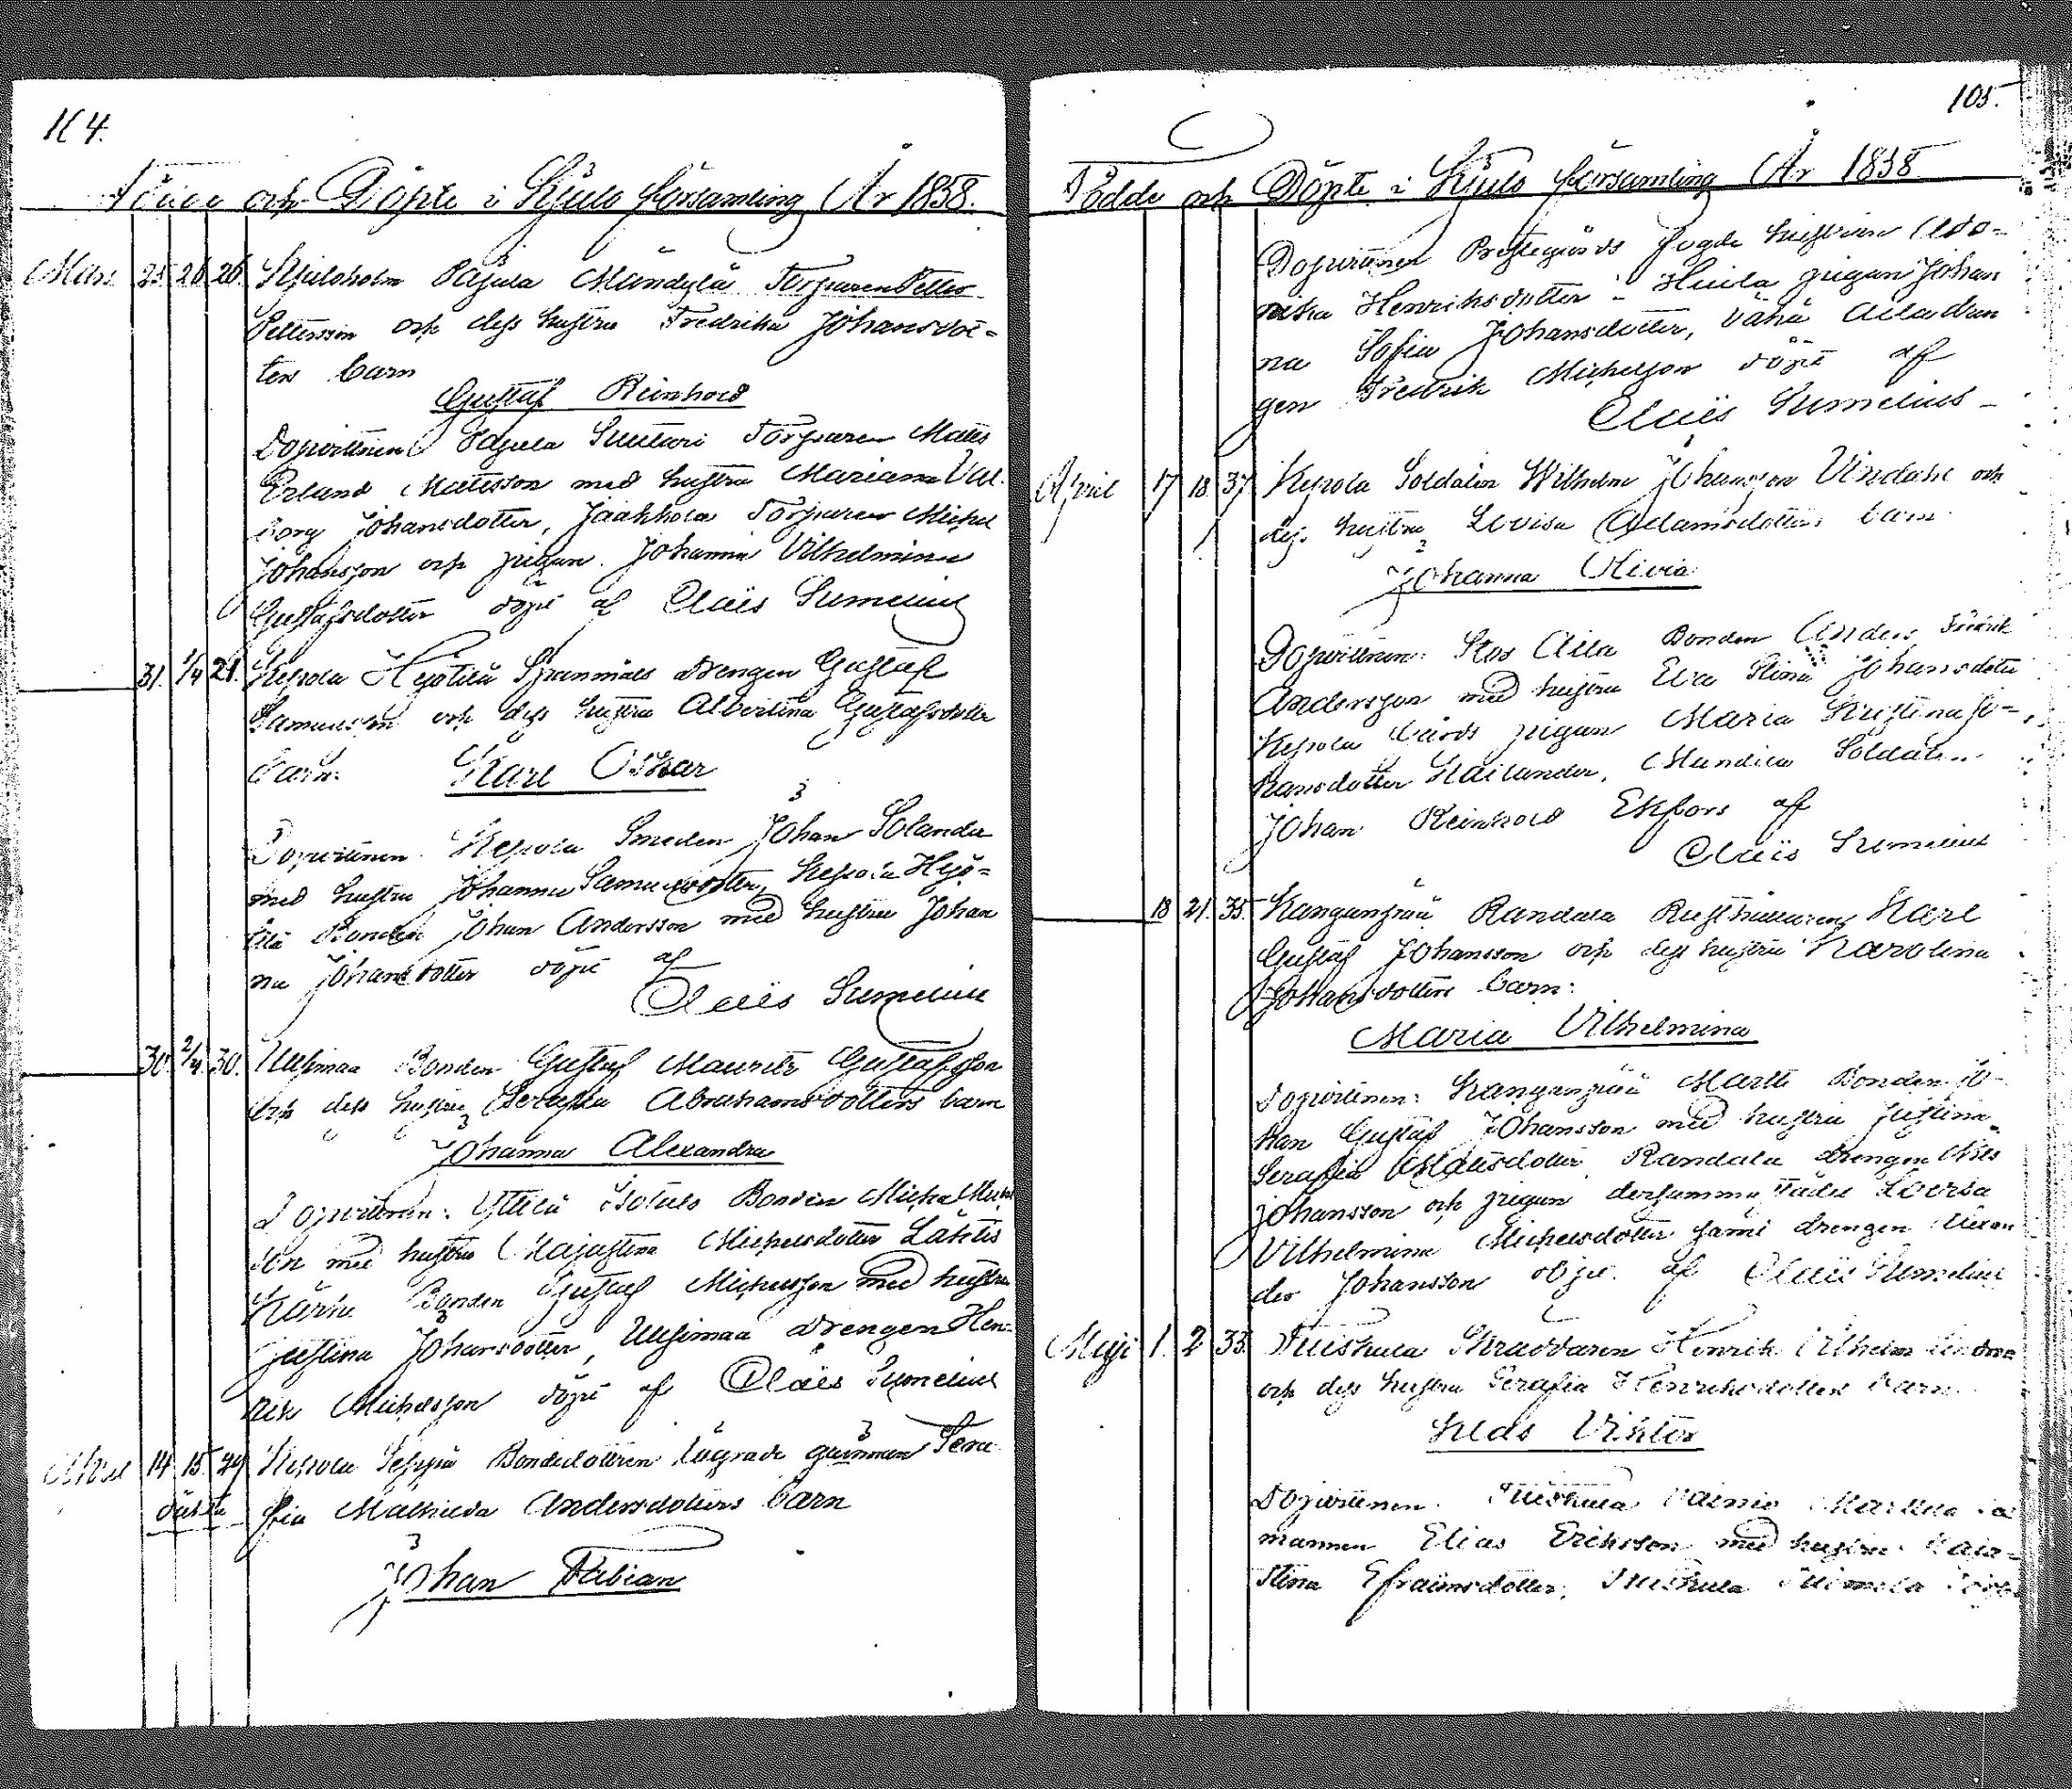 104.
Födde och Döpte i Kjulo församling År 1858.
Mars 25 26 26. Kjuloholm Pajula Mändylä Torparen Petter
Pettersson och dess hustru Fredrika Johansdot-
ters barn
Gustaf Reinhold
Dopvittnen Torparen Matts
Erland Mattsson med hustru Mariana Val-
borg Johansdotter, Jaakkola Torparen Michel
Johansson och pigan Johanna Vilhelmina
Gustafsdotter döpt af Claës Sumelius
31. 1/4 21. Kepola Hyötilä Spanmåls drengen Gustaf
Samuelsson och dess hustru Albertina Gustafsdotter
barn: Karl Oskar
Dopvittnen Kepola Smeden Johan Solander
med hustru Johanna Samuelsdotter, Kepola Hyö-
tilä Bonden Johan Andersson med hustru Johan
na Johansdotter döpt af
Claës Sumelius
30. 2/4 30. Uusimaa Bonden Gustaf Mauritz Gustafsson
och dess hustru Serafia Abrahamsdotters barn
Johanna Alexandra
Dopvittnen: Yttilä Isotalo Bonden Michel Michel
son med hustru Majastina Michelsdotter Lähtis
Kärki Bonden Gustaf Michelsson med hustru
Justina Johansdotter, Uusimaa drengen Hen-
rik Michelsson döpt af Claës Sumelius
April 14 15 29 Kepola Seppä Bondedottren lägrade qwinnan Sera
oäkta fia Mathilda Andersdotters barn
Johan Fabian
105.
Födde och Döpte i Kjulo församling År 1858
Dopvittnen Prestegårds fogde hustrun Uld-
rika Henriksdotter i Huila pigan Johan
na Sofia Johansdotter, Vähä Aila drän
gen Fredrik Michelsson döpt af
Claës Sumelius
April 17 18 37 Kepola Soldaten Wilhelm Johansson Vindahl och
dess hustru Lovisa Adamsdotters barn
Johanna Olivia
Dopvittnen: Stor Aila Bonden Anders Fredrik
Andersson med hustru Eva Stina Johansdotter
Kepola Gårds pigan Maria Kristina Jo-
hansdotter Kailander, Soldaten
Johan Reinhold Ekfors af
Claës Sumelius
18 21. 35. Kangunpää Randala Rusthållaren Karl
Gustaf Johansson och dess hustru Karolina
Johansdotters barn:
Maria Vilhelmina
Dopvittnen: Kangunpää Martti Bonden Jo-
han Gustaf Johansson med hustru Justina
Serafia Mattsdotter Randala drengen Nils
Johansson och pigan dersammastädes Lovisa
Vilhelmina Michelsdotter samt drengen Alexan
der Johansson döpt af Claës Sumelius
Maji 1. 2 33. Tuiskula Skräddaren Henrik Vilhelm
och dess hustru Serafia Henriksdotters barn
Frans Viktor
Dopvittnen. Tuiskula Vainio
mannen Elias Eriksson med hustru Caja-
Stina Efraimsdotter, Tuiskula